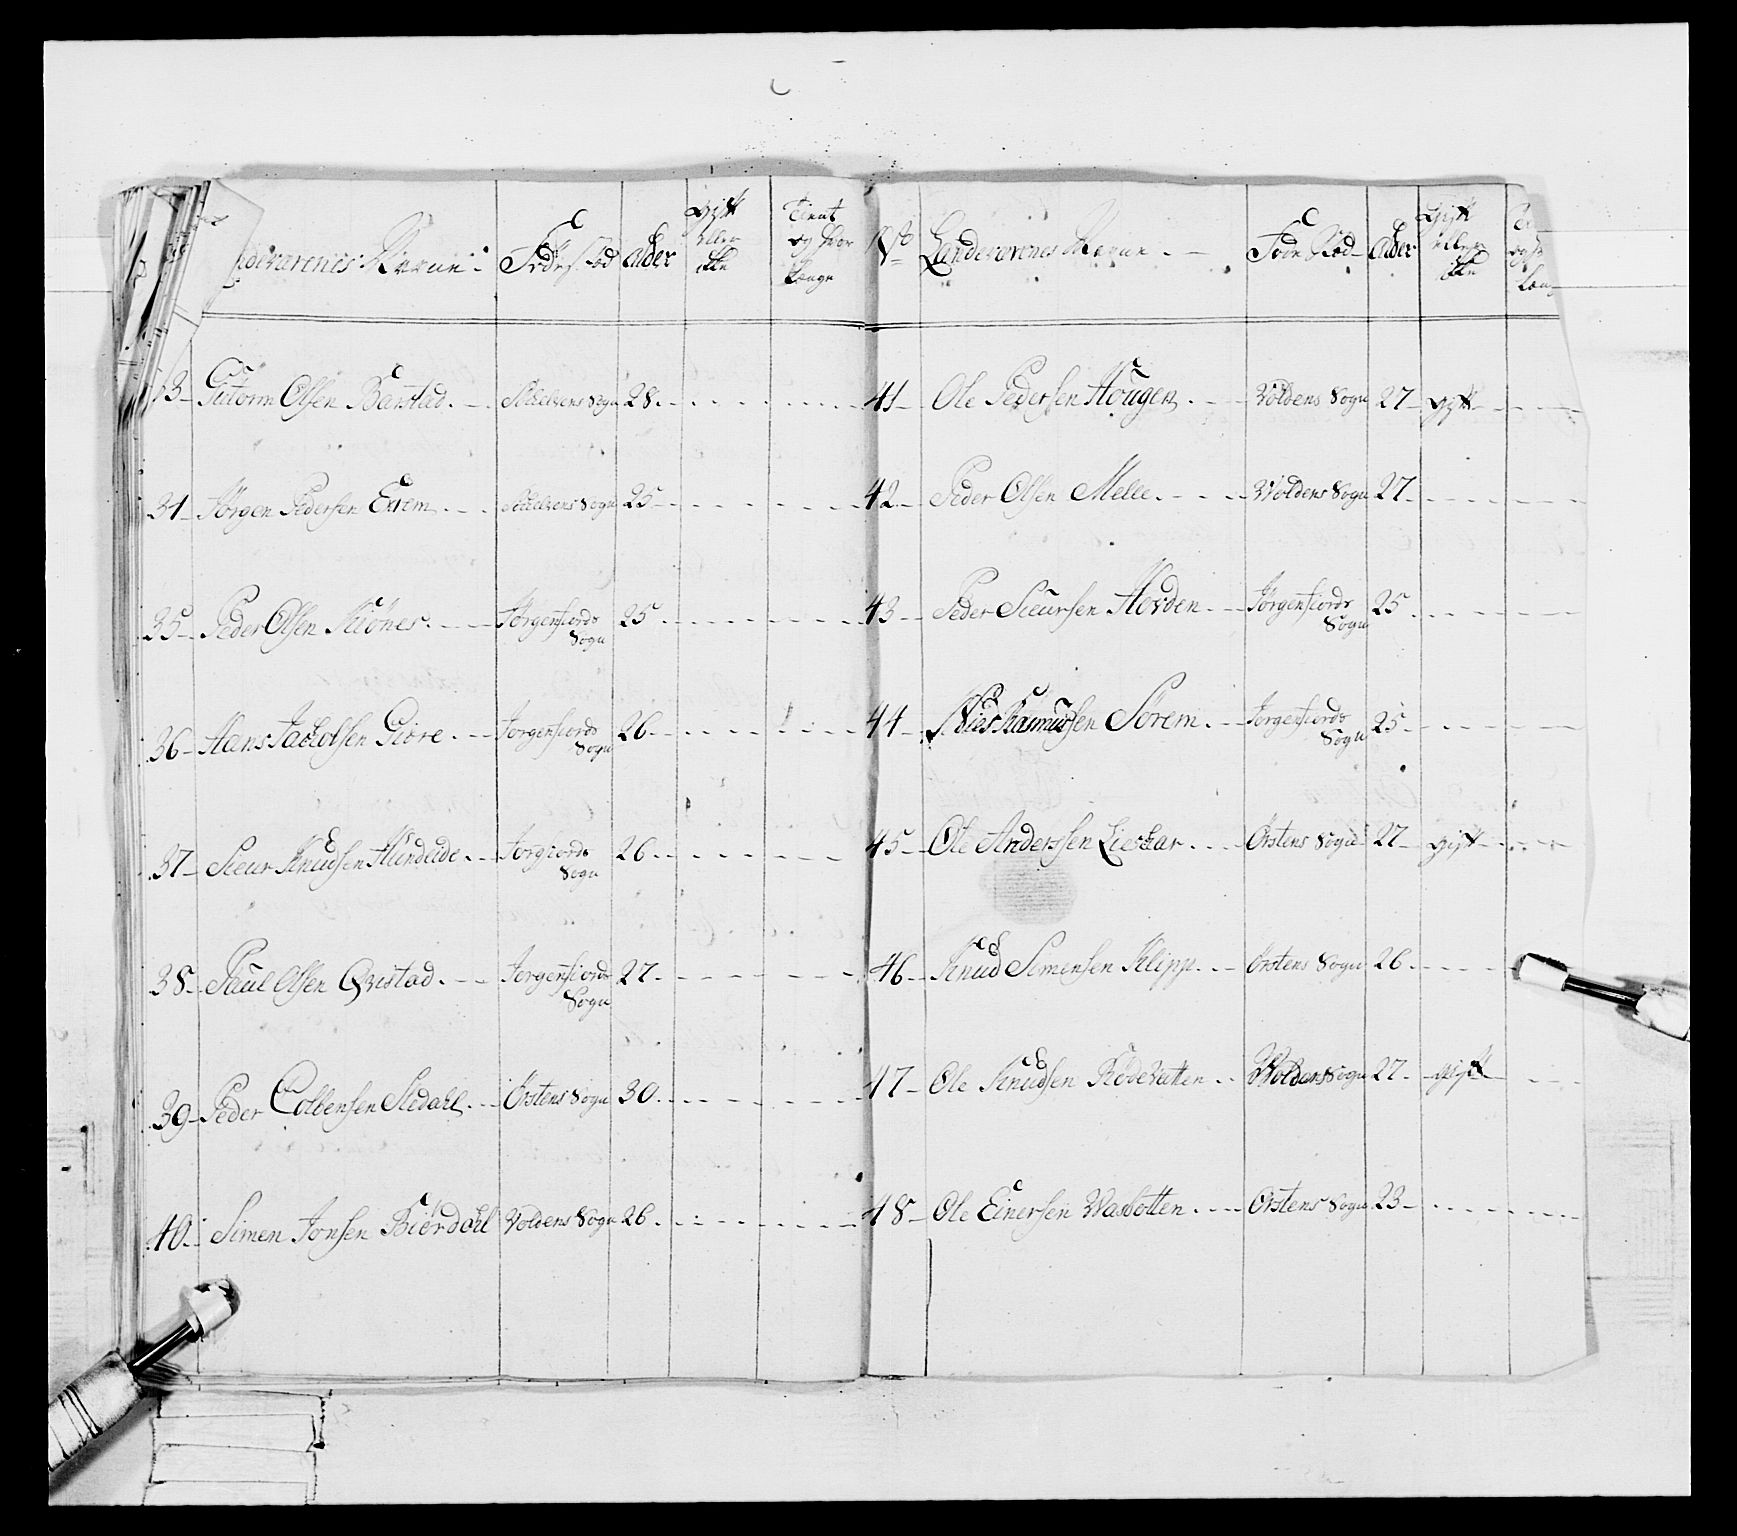 Navne Føde Sted alder gift eller ikke tient og hvor længe
33 Gutorm Olsen Barstad Sogn 28
34 Jørgen Pedersen Exem Sogn 25
35 Peder Olsen Kiönes Jørgenfiords Sogn 25
36 Hans Jacobsen Giöre Jørgenfiords Sogn 26
37 Sieur Knudsen Jørgfiords Sogn 26
38 Paul Olsen Qvistad Jørgenfiords Sogn 27
39 Peder Colbensen Ørstens Sogn 30
40 Simen Jonsen Biørdahl Voldens Sogn 26
No Landeværenes Navne Føde Sted alder gift eller ikke
41 Ole Pedersen Hougen Voldens Sogn 27 gift
42 Peder Olsen Melle Woldens Sogn 27
43 Peder Sieursen Hovden Jørgenfiords Sogn 25
44 Nies Rasmussen Sørem Jørgenfiords Sogn 25
45 Ole Anderssen Liesær Ørstens Sogn 27 gift
46 Knud Simensen Klipp Ørstens Sogn 26
47 Ole Knudsen Rödevatten Woldens Sogn 27 gift
48 Ole Einersen Wasbotten Ørstens Sogn 23